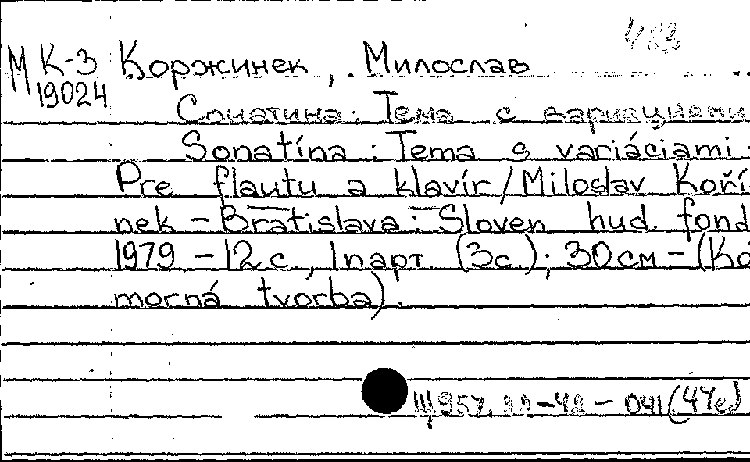 МК-3 Коржинек, Милослав
19024
Сонатина: Тема с вариациями
Sonatína: Tema s variáciami:
Pre flautu a klavír/Miloslav Koří-
nek - Bratislava: Sloven hud. fond
1979 - 12 с., 1 парт. (3с.); 30 см - (Ko
morná tvorba).
Щ957. -42 - 041(4Че)